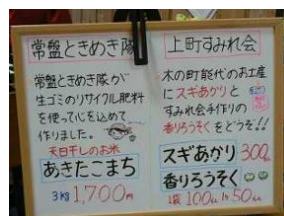 常盤ときめき隊
常盤ときめき隊が
生ゴミのリサイクル肥料
を使って心を込めて
作りました。
天日干しのお米
あきたこまち
3kg 1,700円
上町すみれ会
木の町能代のお土産
にスギあかりと
すみれ会手作りの
香りろうそくをどうぞ!!
スギあかり 300円
香りろうそく
1袋 100円 1ヶ 50円